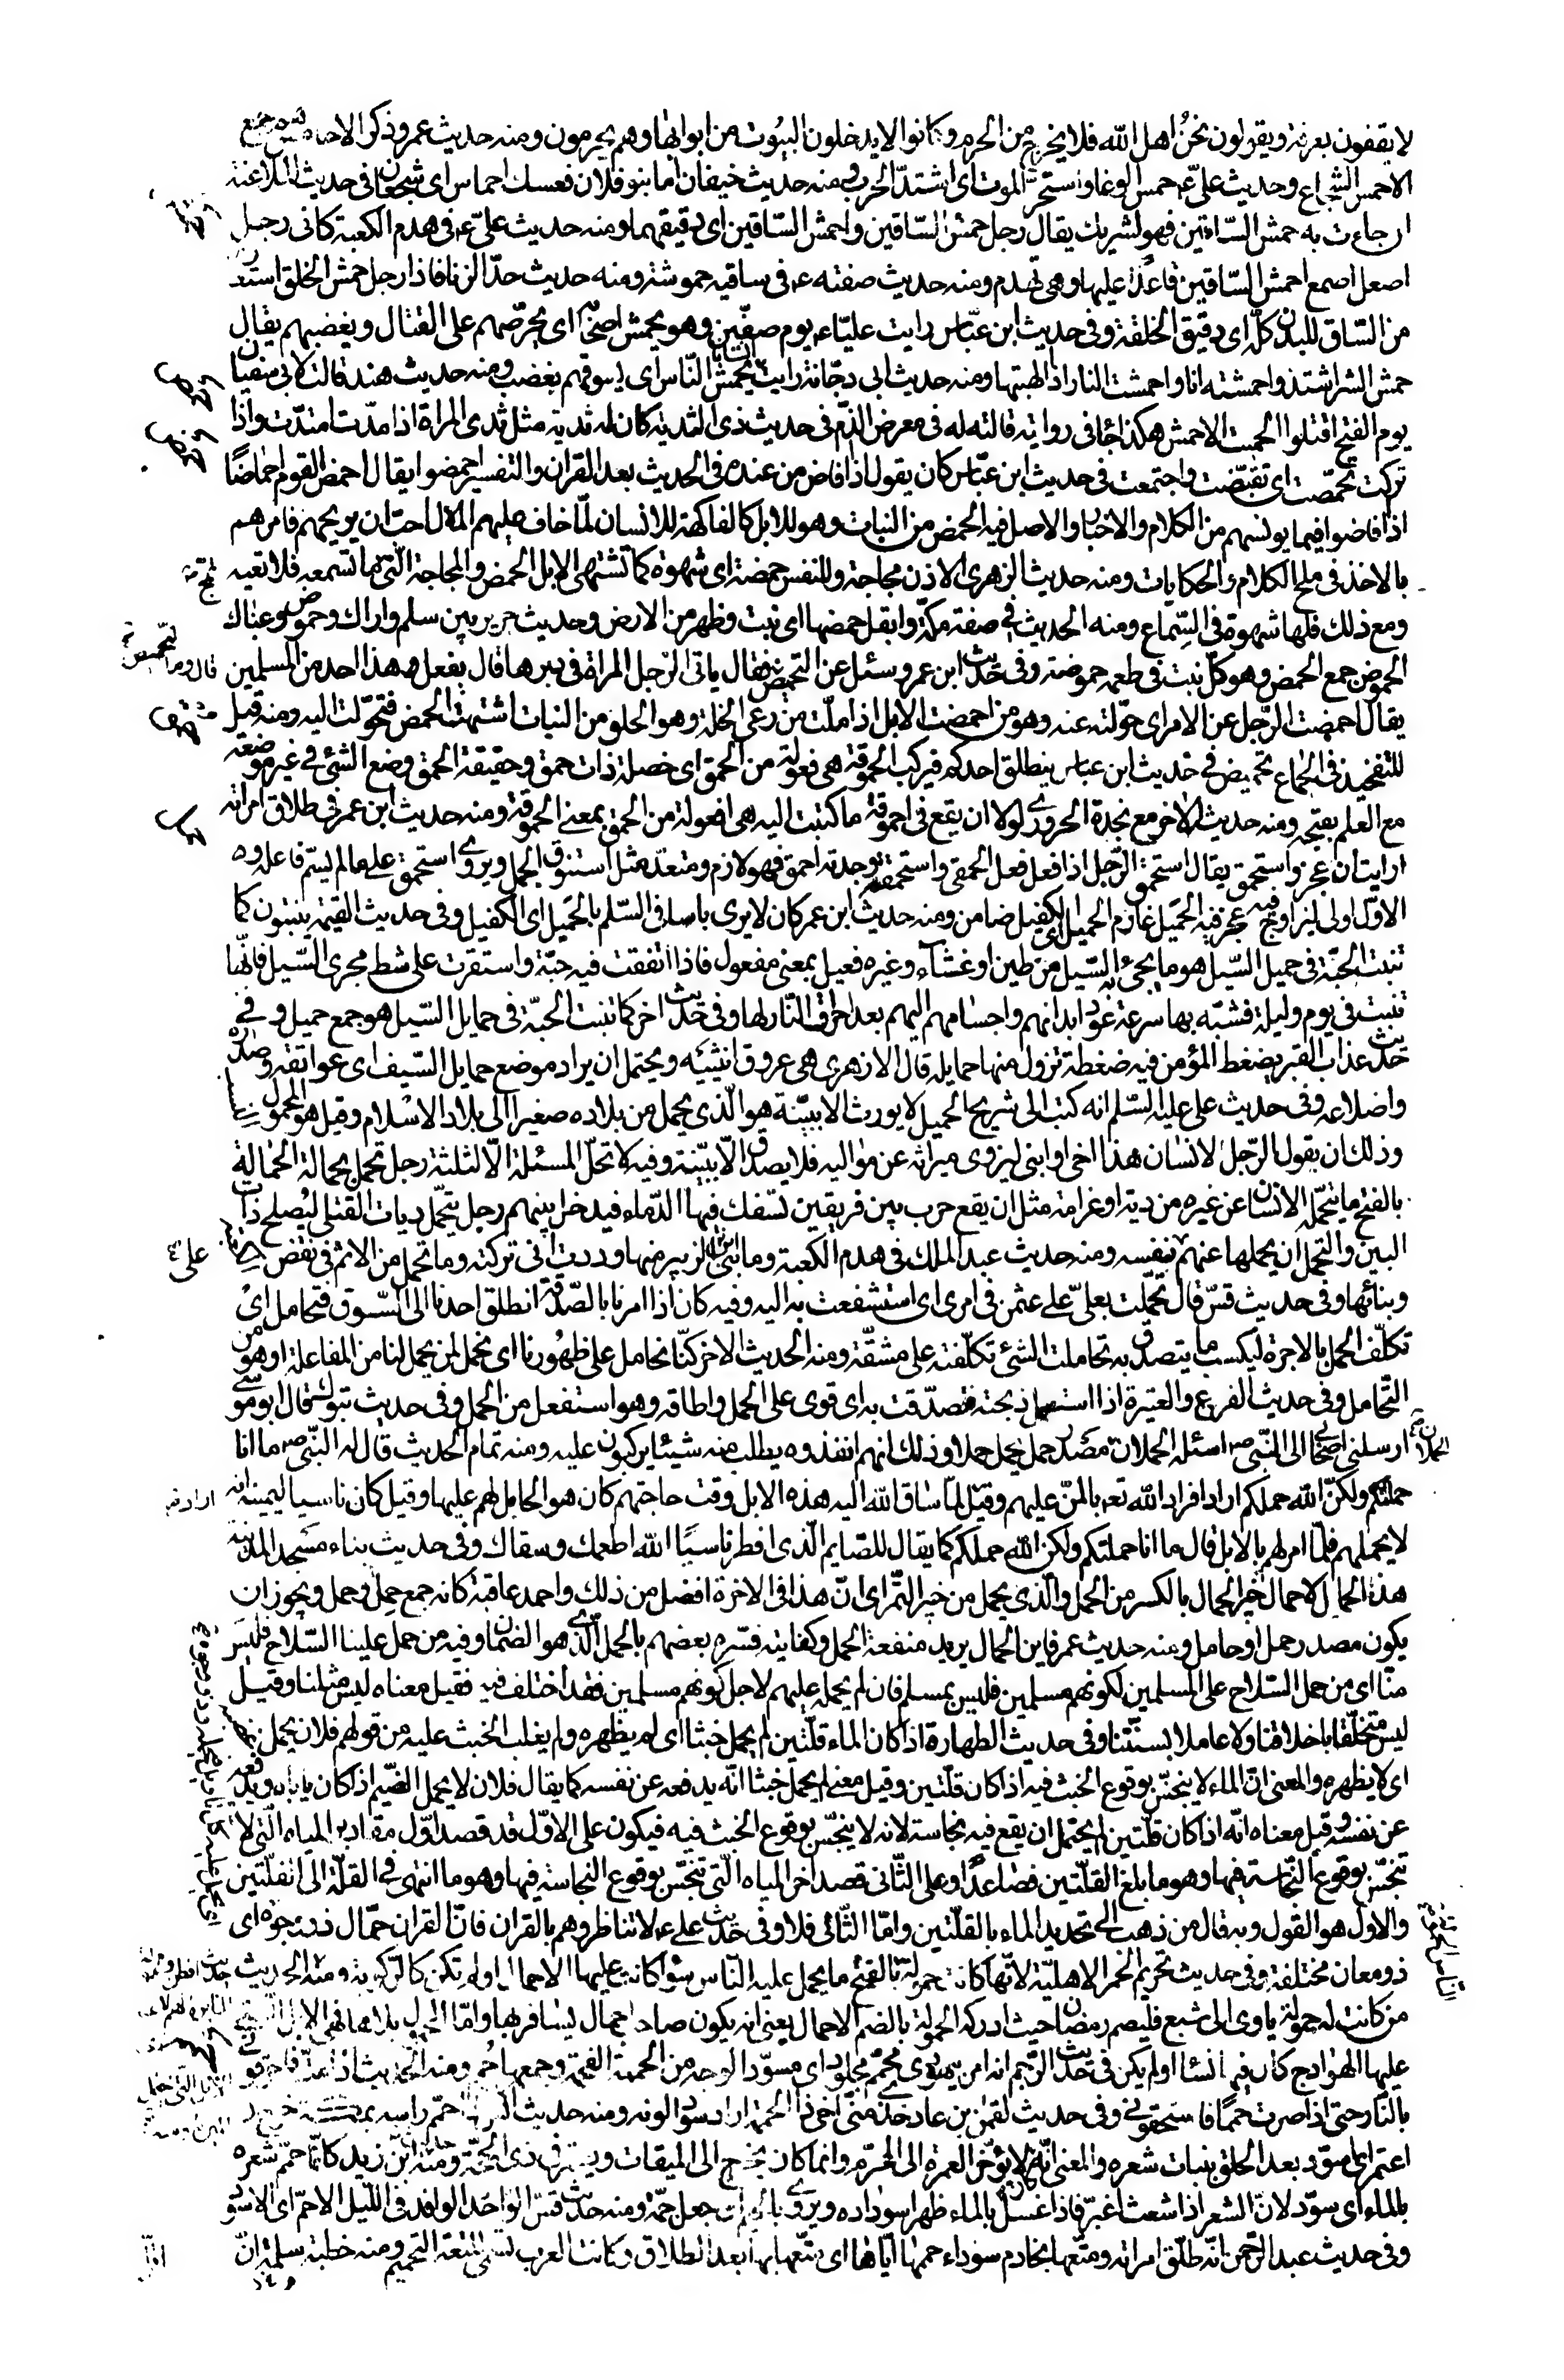 لا يقفون بعرفة ويقولون نحن اهل الله فلا نخرج من الحرم وكانوا لا يدخلون البيوت من ابوابها وهم محرمون ومنه حديث عمر وذكر الاحامس هو جمع
الاحمس الشجاع وحديث علي ع حمس الوغا واستحر الموت اى اشتد الحرب ومنه حديث خيفان اما بنو فلان فمسك احماس اى شجعان فى حديث الملاعنة
ان جاءت به حمش الساقين فهو لشريك يقال رجل حمش الساقين واحمش الساقين اى دقيقهما ومنه حديث علي ع فى هدم الكعبة كانى برجل
اصعل اصمع احمش الساقين قاعدا عليها وهى تهدم ومنه حديث صفته ع فى ساقيه حموشة ومنه حديث حد الزنا فاذا رجل حمش الخلق استعاره
من الساق للبدن كله اى دقيق الخلقة وفى حديث ابن عباس رايت عليا ع يوم صفين وهو يحمش اصحابه اى يحرضهم على القتال ويغضبهم يقال
حمش الشر اشتد واحمشته انا واحمشت النار اذا الهبتها ومنه حديث ابى دجانة رايت انسانا يحمش الناس اى يسوقهم بغضب ومنه حديث هند قالت لابى سفيان
يوم الفتح اقتلوا الحميت الاحمش هكذا جا فى رواية قالته له فى معرض الذم فى حديث ذى الثدية كان له ثدية مثل ثدى المراة اذا مدت امتدت واذا
تركت تحمصت اى تقبضت واجتمعت فى حديث ابن عباس كان يقول اذا افاض من عنده فى الحديث بعد القران والتفسير احمضوا يقال احمض القوم احماضا
اذا افاضوا فيما يونسهم من الكلام والاخبار والاصل فيه الحمض من النبات وهو للابل كالفاكهة للانسان لما خاف عليهم الملال احب ان يريحهم فامرهم
بالاخذ فى ملح الكلام والحكايات ومنه حديث الزهرى الاذن مجاجة وللنفس حمضة اى شهوة كما تشتهى الابل الحمض والمجاجة التى تمج ما تسمعه فلا تعيه
ومع ذلك فلها شهوة فى السماع ومنه الحديث فى صفة مكة وابقل حمضها اى نبت وظهر من الارض وحديث جرير بين سلم واراك وحموض وعناك
الحموض جمع الحمض وهو كل نبت فى طعمه حموضة وفى حديث ابن عمر وسئل عن التحميض فقال ياتى الرجل المراة فى دبرها قال يفعل هذا احد من المسلمين
يقال احمضت الرجل عن الامر اى حولته عنه وهو من احمضت الابل اذا ملت من رعى الخلة وهو الحلو من النبات اشتهت الحمض فتحولت اليه ومنه قيل
للتفخيذ فى الجماع تحميض فى حديث ابن عباس ينطلق احدكم فيركب الحموقة هى فعولة من الحمق اى خصلة ذات حمق وحقيقة الحمق وضع الشئ فى غير موضعه
مع العلم بقبحه ومنه حديث الاخر مع نجدة الحرورى لولا ان يقع فى احموقة ما كتبت اليه هى افعولة من الحمق بمعنى الحموقة ومنه حديث ابن عمر فى طلاق امراته
ارايت ان عجز واستحمق يقال استحمق الرجل اذا فعل فعل الحمقى واستحمقته وجدته احمق فهو لازم ومتعد مثل استنوق الجمل ويروى استحمق على ما لم يسم فاعله وه
الاول اولى ليزاوج عجز فيه الحميل غارم الحميل الكفيل اى ضامن ومنه حديث ابن عمر كان لا يرى باسا فى السلم بالحميل اى الكفيل وفى حديث القيمة ينبتون كما
تنبت الحبة فى حميل السيل هو ما يجئ به السيل من طين او غشاء وغيره فعيل بمعنى مفعول فاذا اتفقت فيه حبة واستقرت على شط مجرى السيل فانها
تنبت فى يوم وليلة فشبه بها سرعة عود ابدانهم واجسامهم اليهم بعد احراق النار لها وفى حديث اخر كما تنبت الحبة فى حمايل السيل هو جمع حميل وفى
حديث عذاب القبر يضغط المؤمن فيه ضغطة تزول منها حمايله قال الازهرى هى عروق انثييه ويحتمل ان يراد موضع حمايل السيف اى عواتقه وصدره
واضلاعه وفى حديث على عليه السلم انه كتب الى شريح الحميل لا يورث الا ببينة هو الذى يحمل من بلاده صغيرا الى بلاد الاسلام وقيل هو المحمول
وذلك ان يقول الرجل لانسان هذا اخى او ابنى ليزوى ميراثه عن مواليه فلا يصدق الا ببينة وفيه لا تحل المسئلة الا لثلثة رجل تحمل بحمالة الحمالة
بالفتح ما يتحمله الانسان عن غيره من دية او غرامة مثل ان يقع حرب بين فريقين تسفك فيها الدماء فيدخل بينهم رجل يتحمل ديات القتلى ليصلح ذات
البين والتحمل ان يحملها عنهم بنفسه ومنه حديث عبد الملك فى هدم الكعبة وما بنى ابن الزبير منها وددت انى تركته وما تحمل من الاثم فى نقض
وبنائها وفى حديث قس قال تحملت بعلى على عثمن فى امرى اى استشفعت به اليه وفيه كان اذا امرنا بالصدقة انطلق احدنا الى السوق فتحامل اى
تكلف الحمل بالاجرة ليكسب ما يتصدق به تحاملت الشئ تكلفته على مشقة ومنه الحديث الاخر كنا نحامل على ظهورنا اى نحمل لمن يحمل لنا من المفاعلة او هو من
التحامل وفى حديث الفرع والعتيرة اذا استحمل ذبحته فتصدقت به اى قوى على الحمل واطاقه وهو استفعل من الحمل وفى حديث تبوك قال ابو موسى
ارسلنى اصحابى الى النبى ص اسئله الحملان مصدر حمل يحمل حملا وذلك انهم انفذوه يطلب منه شيئا يركبون عليه ومنه تمام الحديث قال له النبى ص ما انا
حملتكم ولكن الله حملكم اراد افراد الله تع بالمن عليهم وقيل لما ساق الله اليه هذه الابل وقت حاجتهم كان هو الحامل لهم عليها وقيل كان ناسيا ليمينه انه
لا يحملهم فلما امر لهم بالابل قال ما انا حملتكم ولكن الله حملكم كما يقال للصايم الذى افطر ناسيا الله اطعمك وسقاك وفى حديث بناء مسجد المدينة
هذا الحمال لا حمال خيبر الحمال بالكسر من الحمل والذى يحمل من خيبر التمر اى ان هذا فى الاخرة افضل من ذلك واحمد عاقبة كانه جمع حمل وحمل ويجوز ان
يكون مصدر حمل او حامل ومنه حديث عمر فاين الحمال يريد منفعة الحمل وكفايته فسره بعضهم بالحمل الذى هو الضمان وفيه من حمل علينا السلاح فليس
منا اى من حمل السلاح على المسلمين لكونهم مسلمين فليس بمسلم فان لم يحمله عليهم لاجل كونهم مسلمين فقد اختلف فيه فقيل معناه ليس مثلنا وقيل
ليس متخلقا باخلاقنا ولا عاملا بسنتنا وفى حديث الطهارة اذا كان الماء قلتين لم يحمل خبثا اى لم يظهره ولم يغلب الخبث عليه من قولهم فلان يحمل غضبه
اى لا يظهره والمعنى ان الماء لا ينجس بوقوع الخبث فيه اذا كان قلتين وقيل معنى لم يحمل خبثا انه يدفعه عن نفسه كما يقال فلان لا يحمل الضيم اذا كان ياباه ويدفعه
عن نفسه وقيل معناه انه اذا كان قلتين لم يحتمل ان يقع فيه نجاسة لانه لا ينجس بوقوع الخبث فيه فيكون على الاول قد قصد اول مقادير المياه التى لا
تنجس بوقوع النجاسة فيها وهو ما بلغ القلتين فصاعدا وعلى الثانى قصد اخر المياه التى تنجس بوقوع النجاسة فيها وهو ما انتهى فى القلة الى القلتين
والاول هو القول وبه قال من ذهب الى تحديد الماء بالقلتين واما الثانى فلا وفى حديث على ع لا تناظروهم بالقران فان القران حمال ذو وجوه اى
ذو معان مختلفة وفى حديث تحريم الحمر الاهلية لانها كانت حمولة بالفتح ما يحمل عليه الناس سواء كانت عليها الاحمال او لم تكن كالركوبة ومنه الحديث
من كانت له حمولة ياوى الى شبع فليصم رمضان حيث ادركه الحمولة بالضم الاحمال يعنى انه يكون صاحب احمال يسافر بها واما الحمول بلا هاء فهى الابل التى
عليها الهوادج كان فيها نساء او لم يكن فى حديث الرجم انه امر بيهودى محمم مجلود اى مسود الوجه من الحممة الفحمة وجمعها حمم ومنه الحديث اذا مت فاحرقونى
بالنار حتى اذا صرت حمما فاسحقونى وفى حديث لقمن بن عاد خذى منى اخى ذا الحممة اراد سواد لونه ومنه حديث انس اذا حمم راسه بمكة خرج و
اعتمر اى اسود بعد الحلق بنبات شعره والمعنى انه كان لا يؤخر العمرة الى المحرم وانما كان يخرج الى الميقات ويعتمر فى ذى الحجة ومنه ابن زيد كانما حمم شعره
بالماء اى سود لان الشعر اذا شعث اغبر فاذا غسل بالماء ظهر سواده ويروى بالجيم اى جعل جمة ومنه حديث قس الوافد فى الليل الاحم اى الاسود
وفى حديث عبد الرحمن انه طلق امراته ومتعها بخادم سوداء حممها اياها اى متعها بها بعد الطلاق وكانت العرب تسمى المتعة التحميم ومنه خطبة سلمة ان